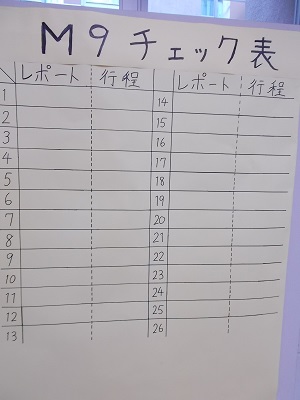 M9チェック表
レポート 行程 レポート 行程
1 14
2 15
3 16
4 17
5 18
6 19
7 20
8 21
9 22
10 23
11 24
12 25
13 26